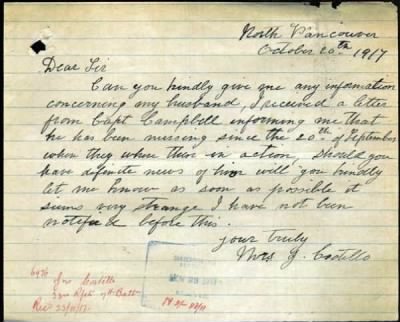 North Vancouver
October 20th 1917
Dear Sir
Can you kindly give me any information
concerning my husband, I received a letter
from Capt Campbell informing me that
he has been missing since the 20th of September
when they where thire in action, should you
have definite news of him will you kindly
let me know as soon as possible it
sims very strange I have not been
notified before this.
your truly
Mrs J. Costello
Jno Costello
Rec 23/11/17